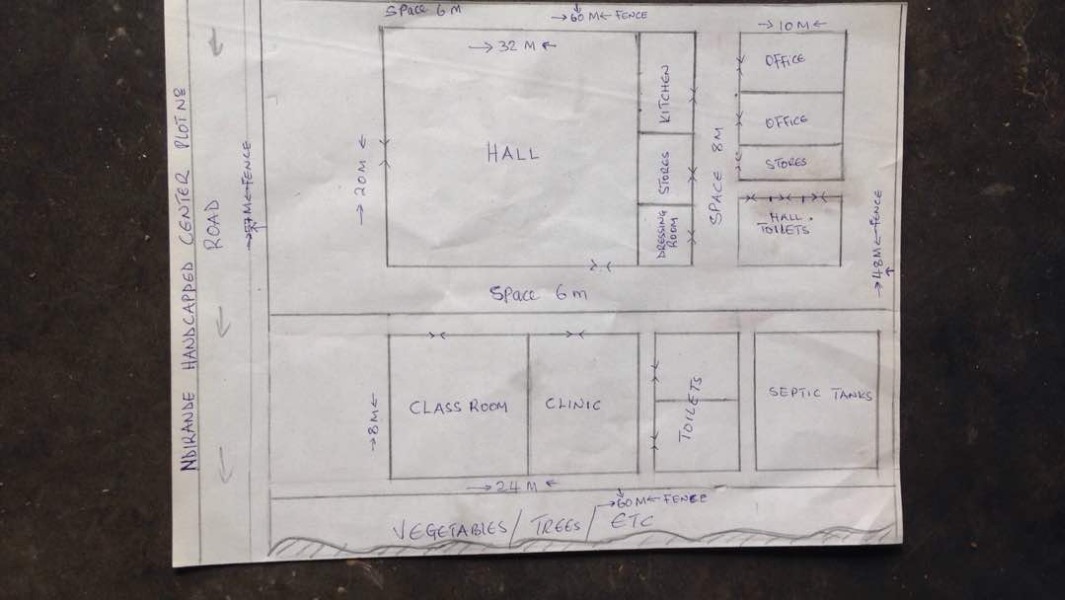 NDIRANDE HANDCAPPED CENTER PLOT NS
ROAD
Space 6 m
60 M FENCE
10 M
32 M
20 M
HALL
KITCHEN
STORES
DRESSING
ROOM
SPACE 8M
OFFICE
OFFICE
STORES
HALL
TOILETS
FENCE
48M FENCE
Space 6 m
8M
CLASS ROOM
CLINIC
TOILETS
SEPTIC TANKS
24 M
60M FENCE
VEGETABLES/ TREES/ ETC